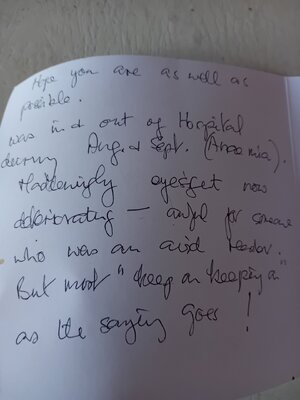 Hope you are as well as
possible.
was in & out of Hospital
during Aug. & Sept. (Anaemia).
Maddeningly eyesight now
deteriorating — awful for someone
who was an avid reader.
But must "keep on keeping on"
as the saying goes!